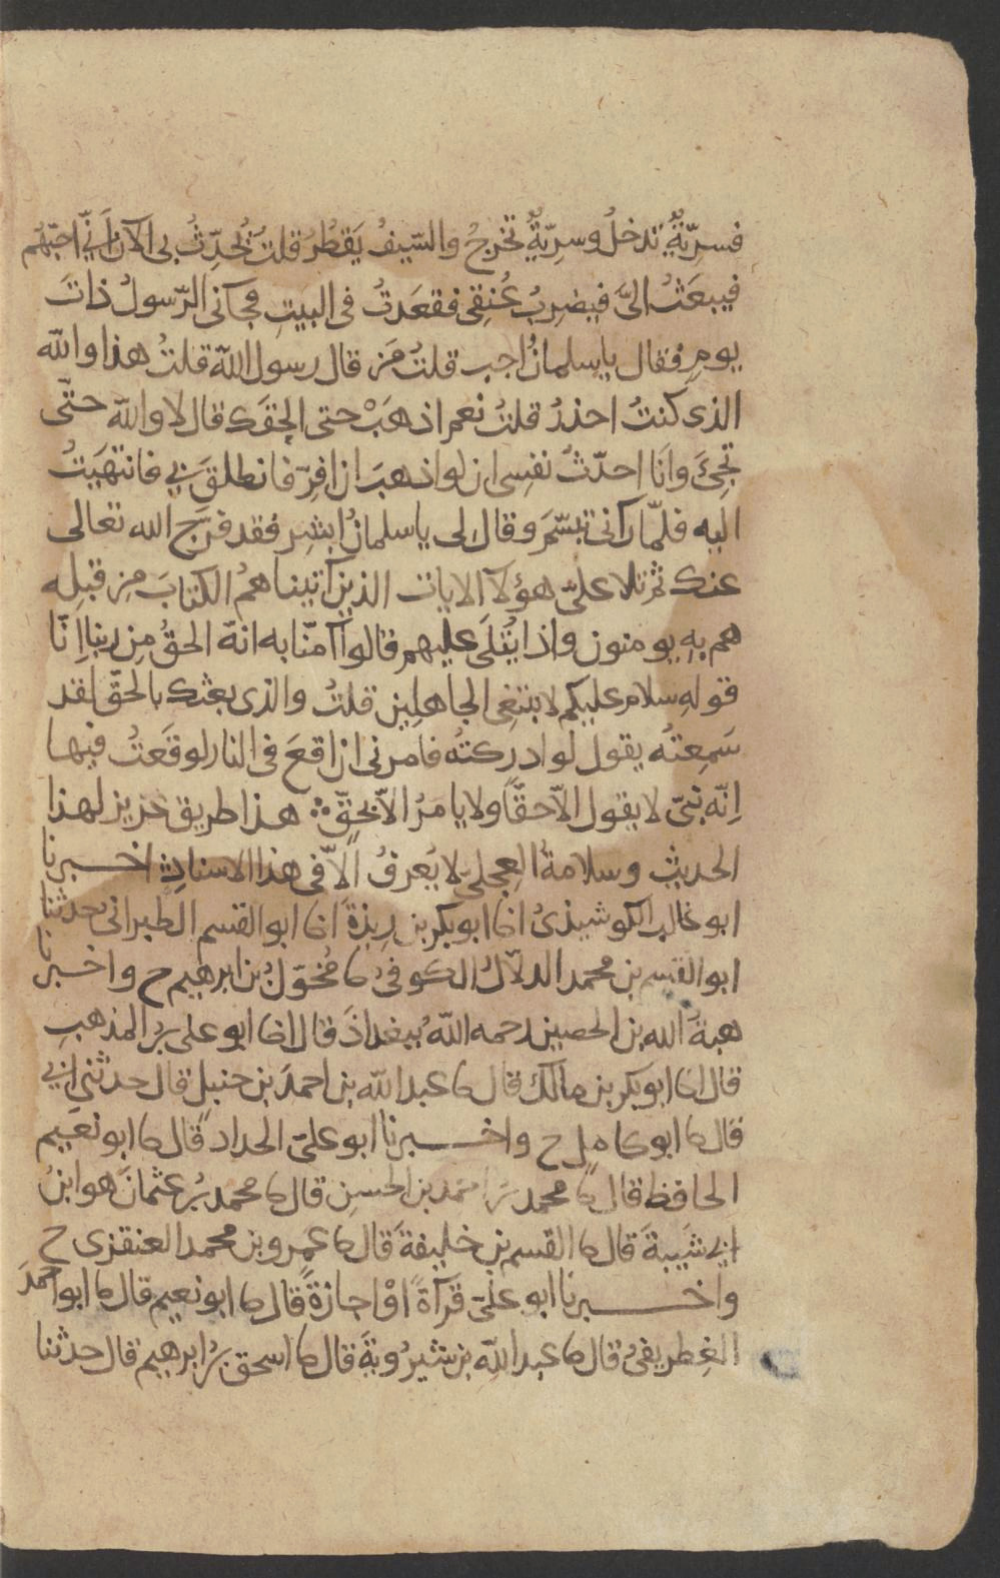 فسريّةٌ تدخلُ وسريّةٌ تخرجُ والسّيفُ يَقطُرُ قلت يُحدّثُ بى الآن أَنّي احبّهُم
فيبعَثُ الىَّ فيضرِبُ عُنقِى فقعَدتُ فى البيتِ فجآنى الرّسولُ ذاتَ
يومٍ فقال يا سلمانُ اجب قلتُ مَن قال رسول اللّه قلتُ هذا واللّه
الذى كنتُ احذرُ قلتُ نعم اذهَبْ حتى الحقَك قال لا واللّه حتّى
تجئَ وانَا احدّثُ نفسِى ان لو اذهبَ ان افِرّ فانطلقَ بي فانتهَيتُ
اليه فلمّا رآنى تبسّمَ وقال لى يا سلمانُ ابشِر فقد فرّج الله تعالى
عنك ثم تلا علىّ هؤلآ الايات الذين آتيناهم الكتابَ من قبلِه
هم به يومنون واذا يُتلَى عليهم قالوا آمنّا به انّه الحقُّ مِن ربنا اِنّا
قوله سلام عليكم لا نبتغِى الجاهلِين قلتُ والذى بعثك بالحقّ لقد
سَمِعتُه يقول لو ادركتُه فامرنى ان اقعَ فى النار لوقَعتُ فيها
اِنّه نبىّ لا يقول الاّ حقًّا ولا يامرُ الاّ بحقّ ∴ هذا طريق عزيز لهذا
الحديثِ وسلامةُ العِجلىّ لا يُعرفُ الاّ فى هذا الاسنادِ اخبرنا
ابو غالب الكوشيذىُ انا ابو بكر بن رِيذةَ انا ابو القسم الطبرانى حدثنا
ابو القسم بن محمد الدلاّلُ الكوفىُ نا مُخوّلُ بن ابرهيم ح واخبرنا
هبةُ الله بن الحصين رحمه اللّهُ ببغداذَ قال انا ابو على بنُ المذهبِ
قال انا ابو بكر بن مالك قال نا عبد اللّه بن احمدَ بن حنبلٍ قال حدثنى ابي
قال نا ابو كامل ح واخبرنا ابو علىّ الحداد قال نا ابو نعيم
الحافظ قال نا محمد بن احمد بن الحسنِ قال نا محمد بنُ عثمانَ هو ابنُ
ابي شَيبةَ قال نا القسم بن خليفةَ قال نا عمرو بن محمد العنقزى ح
واخبرنا ابو علىّ قرآةً اوْ اجازةً قال نا ابو نعيم قال نا ابو احمدَ
الغِطريفىُ قال نا عبد اللّه بن شيرُويةَ قال نا اسحق بنُ ابرهيم قال حدثنا